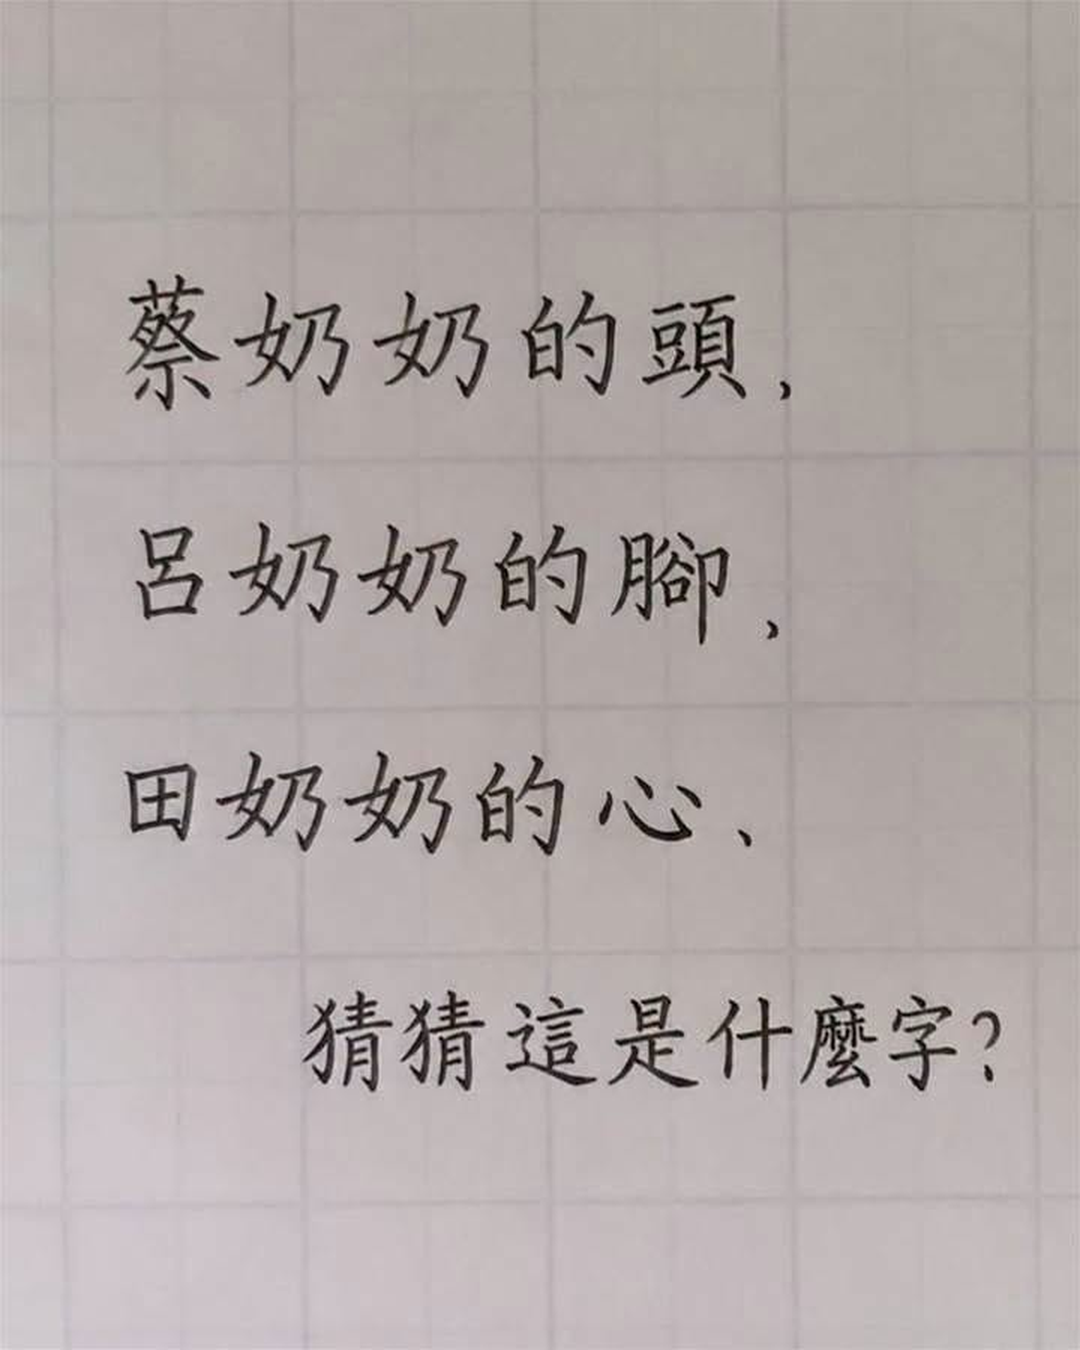 蔡奶奶的頭，
呂奶奶的腳，
田奶奶的心、
猜猜這是什麼字?